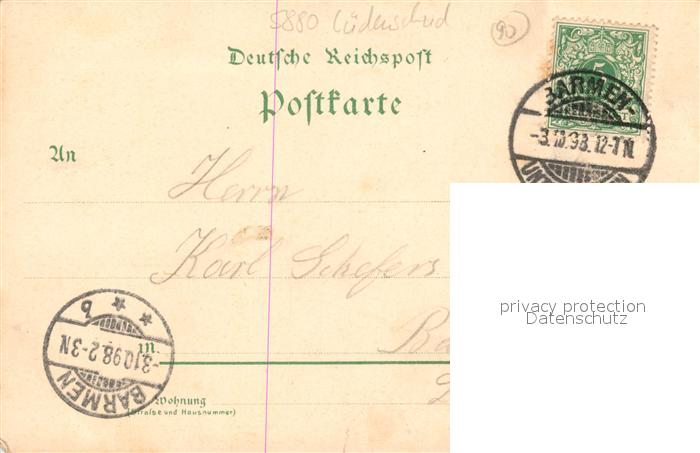 5880 Lüdenscheid
90
Deutsche Reichspost
Postkarte
5
BARMEN-
-3.10.98.12-1N
An
Herrn
Karl Schefers
privacy protection
Datenschutz
b * *
-3.10.98.2-3N
BARMEN
in
Wohnung
(Straße und Hausnummer)